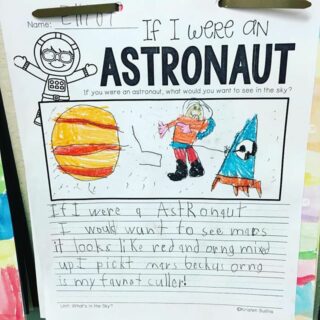 Name: Elliot
If I were an
ASTRONAUT
If you were an astronaut, what would you want to see in the sky?
If I were a AstRonaut
I would want to see mars
it looks like red and orng mixed
up I pickt mars beckus orng
is my favnot culler!
Unit: What's in the Sky?